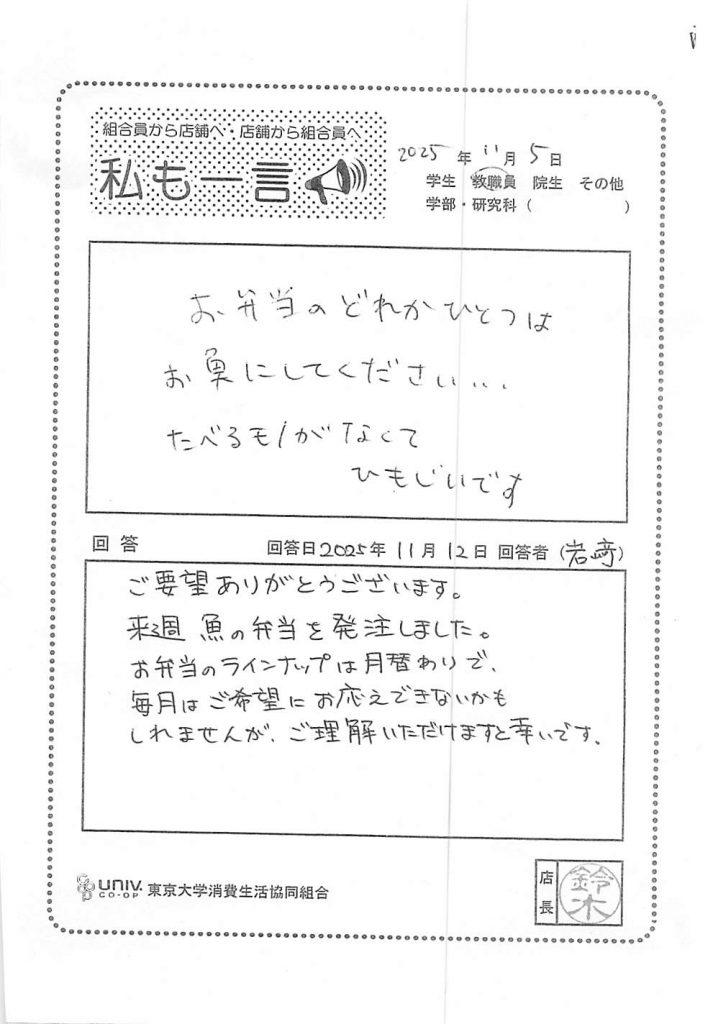 組合員から店舗へ・店舗から組合員へ
私も一言
2025年11月5日
学生 教職員 院生 その他
学部・研究科( )
お弁当のどれかひとつは
お魚にしてください...
たべるモノがなくて
ひもじいです
回答 回答日2025年11月12日 回答者(岩﨑)
ご要望ありがとうございます。
来週 魚の弁当を発注しました。
お弁当のラインナップは月替わりで、
毎月はご希望にお応えできないかも
しれませんが、ご理解いただけますと幸いです。
UNIV. CO-OP 東京大学消費生活協同組合
店長 鈴木